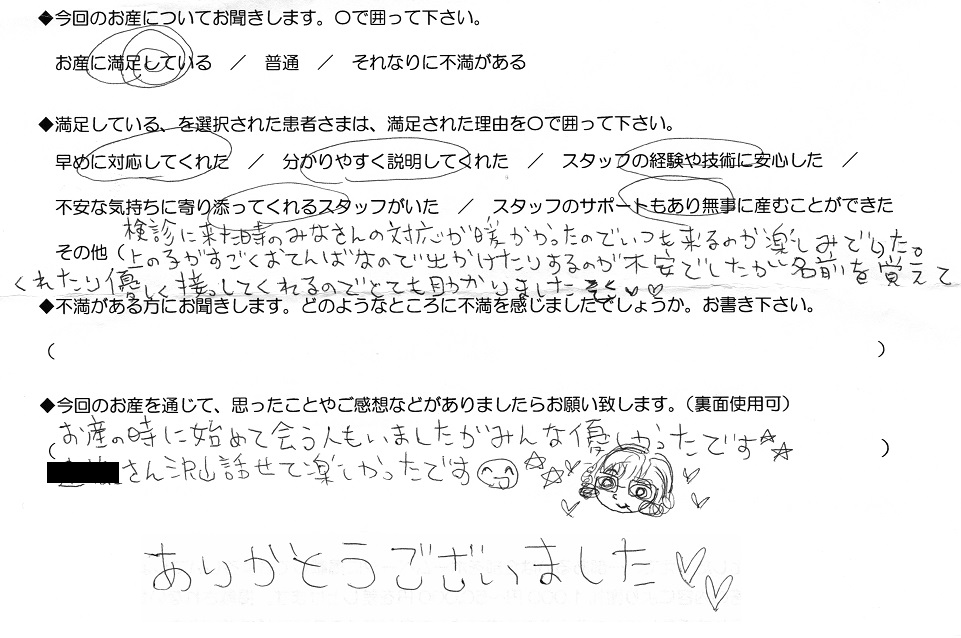 ◆今回のお産についてお聞きします。〇で囲って下さい。
お産に満足している　／　普通　／　それなりに不満がある
◆満足している、を選択された患者さまは、満足された理由を〇で囲って下さい。
早めに対応してくれた　／　分かりやすく説明してくれた　／　スタッフの経験や技術に安心した　／
不安な気持ちに寄り添ってくれるスタッフがいた　／　スタッフのサポートもあり無事に産むことができた
検診に来た時のみなさんの対応が暖かかったのでいつも来るのが楽しみでした。
その他（上の子がすごくおてんばなので出かけたりするのが不安でしたが名前を覚えて
くれたり優しく接してくれるのでとても助かりました
◆不満がある方にお聞きします。どのようなところに不満を感じましたでしょうか。お書き下さい。
（　　　）
◆今回のお産を通じて、思ったことやご感想などがありましたらお願い致します。（裏面使用可）
（お産の時に始めて会う人もいましたがみんな優しかったです☆☆　）
さん沢山話せて楽しかったです☆☆♡
ありがとうございました♡♡